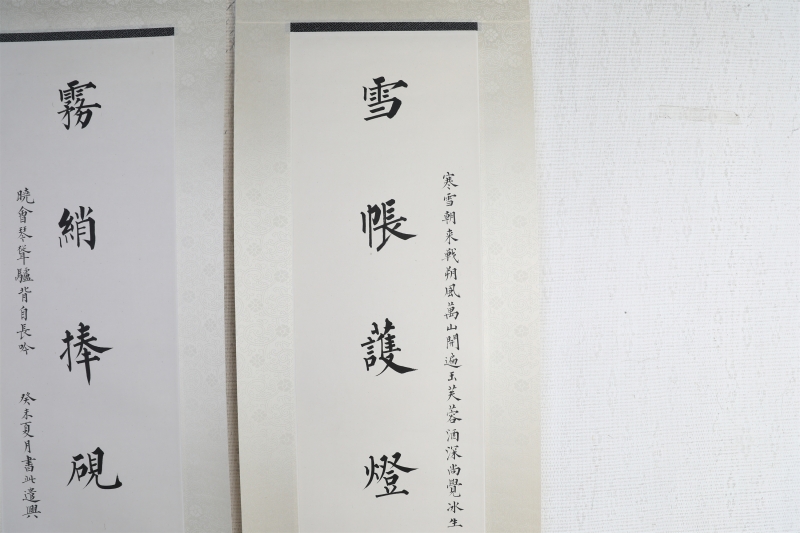 寒雪朝来戰朔風萬山開遍玉芙蓉酒深尚覺冰生
雪帳護燈
霧綃捧硯
曉會琴聳驢背自長吟
癸未夏月書此遣興